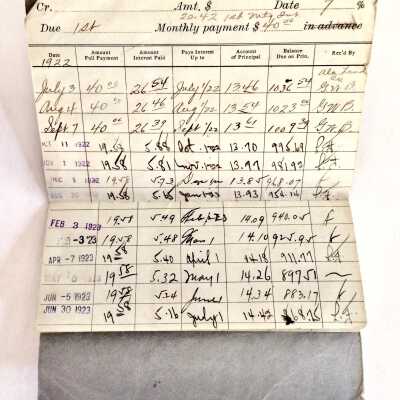 Cr. Amt. $ Date 7 %
20.42 1st Mtg Int
Due 1st Monthly payment $ 40 00 in advance
Date Amount Full Payment Amount Interest Paid Pays Interest Up to Amount of Principal Balance Due on Prin. Rec'd By
1922
July 3 40 00 26 54 July 1/22 13 46 1036 54 G.W.B.
Aug 4 40 00 26 46 Aug 1/22 13 54 1023 00 G.W.B.
Sept 7 40 00 26 39 Sept 1/22 13 61 1009 39 G.W.B.
11 1922 19.58 5.88 Oct. 1-22 13.70 995.69
1 1922 19.58 5.81 Nov. 1-22 981.92
19.58 5.73 13.85 968.07
19.58 5.65 Jan 1-23 13.93 954.14
FEB 3 1923 19.58 5.49 14.09 940.05
3 '23 19.58 5.48 Mar 1 14.10 925.95
APR -7 1923 19 58 5.40 April 1 14.18 911.77
1923 19 58 5.32 May 1 14.26 897.51
JUN -5 1923 19 58 5.24 June 1 14.34 883.17
JUN 30 1923 19 58 5.16 July 1 14.42 868.75